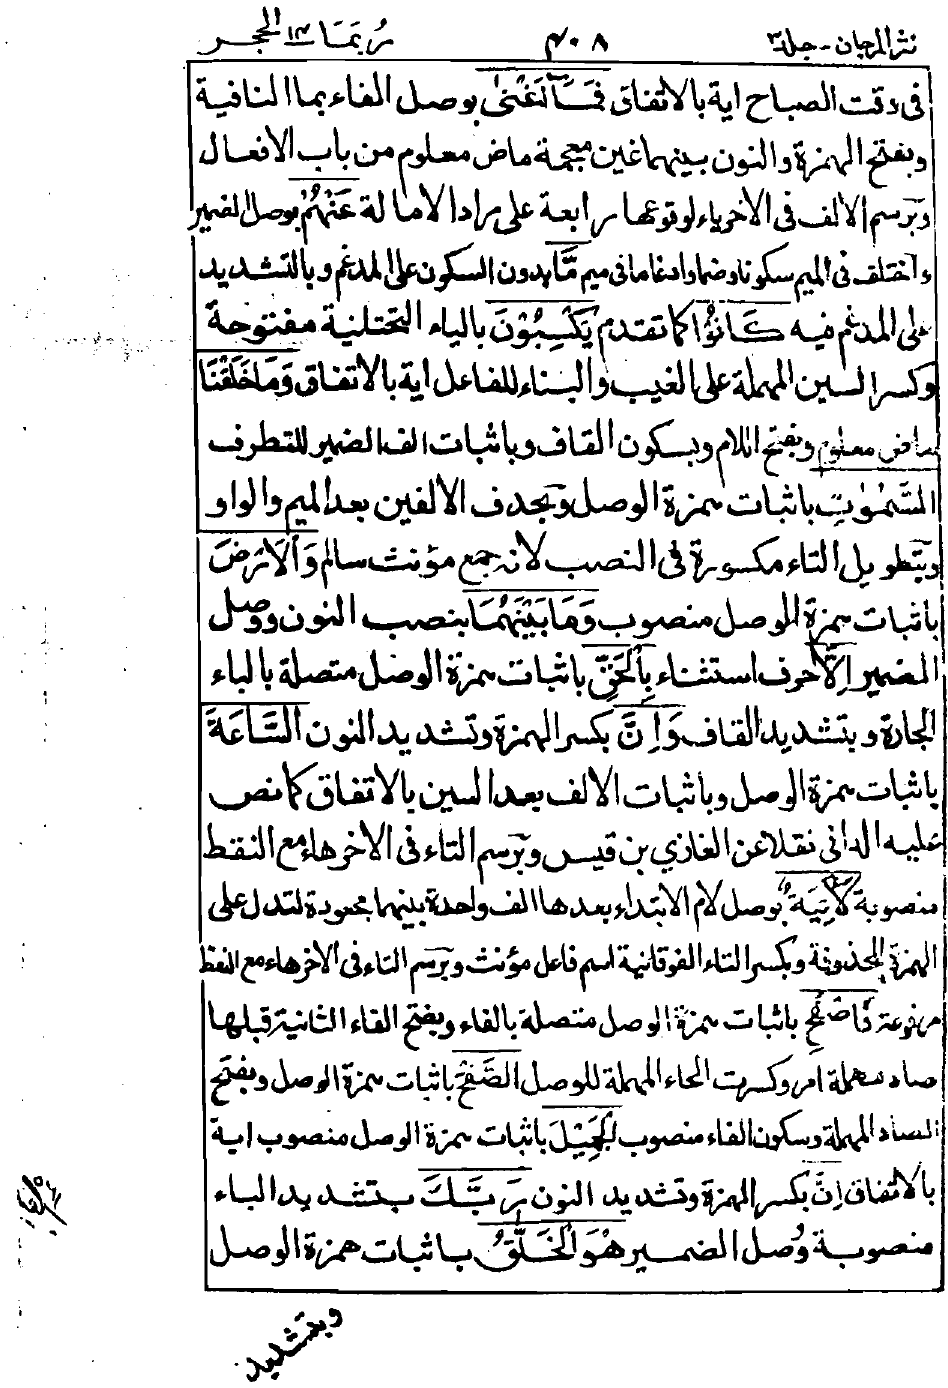 نثر المرجان - جلد ٣ ٤٠٨ ربما ١٤ الحجر
فى وقت الصباح اية بالاتفاق فَمَآ اَغْنٰى بوصل الفاء بما النافية
وبفتح الهمزة والنون بينهما غين معجمة ماض معلوم من باب الافعال
وبرسم الالف فى الاخر ياء لوقوعها رابعة على مراد الامالة عَنْهُمْ بوصل الضمير
واختلف فى الميم سكونا وضما وادغاما فى ميم مَّا بدون السكون على المدغم وبالتشديد
على المدغم فيه كَانُوْا كما تقدم يَكْسِبُوْنَ بالياء التحتانية مفتوحة
وكسر السين المهملة على الغيب والبناء للفاعل اية بالاتفاق وَمَا خَلَقْنَا
ماض معلوم وبفتح اللام وبسكون القاف وباثبات الف الضمير للتطرف
السَّمٰوٰتِ باثبات همزة الوصل وبحذف الالفين بعد الميم والواو
وبتطويل التاء مكسورة فى النصب لانه جمع مؤنث سالم وَالْاَرْضَ
باثبات همزة الوصل منصوب وَمَا بَيْنَهُمَا بنصب النون ووصل
الضمير اِلَّا حرف استثناء بِالْحَقِّ باثبات همزة الوصل متصلة بالباء
الجارة وبتشديد القاف وَاِنَّ بكسر الهمزة وتشديد النون السَّاعَةَ
باثبات همزة الوصل وباثبات الالف بعد السين بالاتفاق كما نص
عليه الدانى نقلا عن الغازي بن قيس وبرسم التاء فى الاخر هاء مع النقط
منصوبة لَاٰتِيَةٌ بوصل لام الابتداء بعدها الف واحدة بينهما مجعودة لتدل على
الهمزة المحذوفة وبكسر التاء الفوقانية اسم فاعل مؤنث وبرسم التاء فى الاخر هاء مع النقط
مرفوعة فَاصْفَحِ باثبات همزة الوصل متصلة بالفاء وبفتح الفاء الثانية قبلها
صاد مهملة امر وكسرت الحاء المهملة للوصل الصَّفْحَ باثبات همزة الوصل وبفتح
الصاد المهملة وسكون الفاء منصوب الْجَمِيْلَ باثبات همزة الوصل منصوب اية
بالاتفاق اِنَّ بكسر الهمزة وتشديد النون رَبَّكَ بتشديد الباء
منصوبة وصل الضمير هُوَ الْخَلّٰقُ باثبات همزة الوصل
وبتشديد